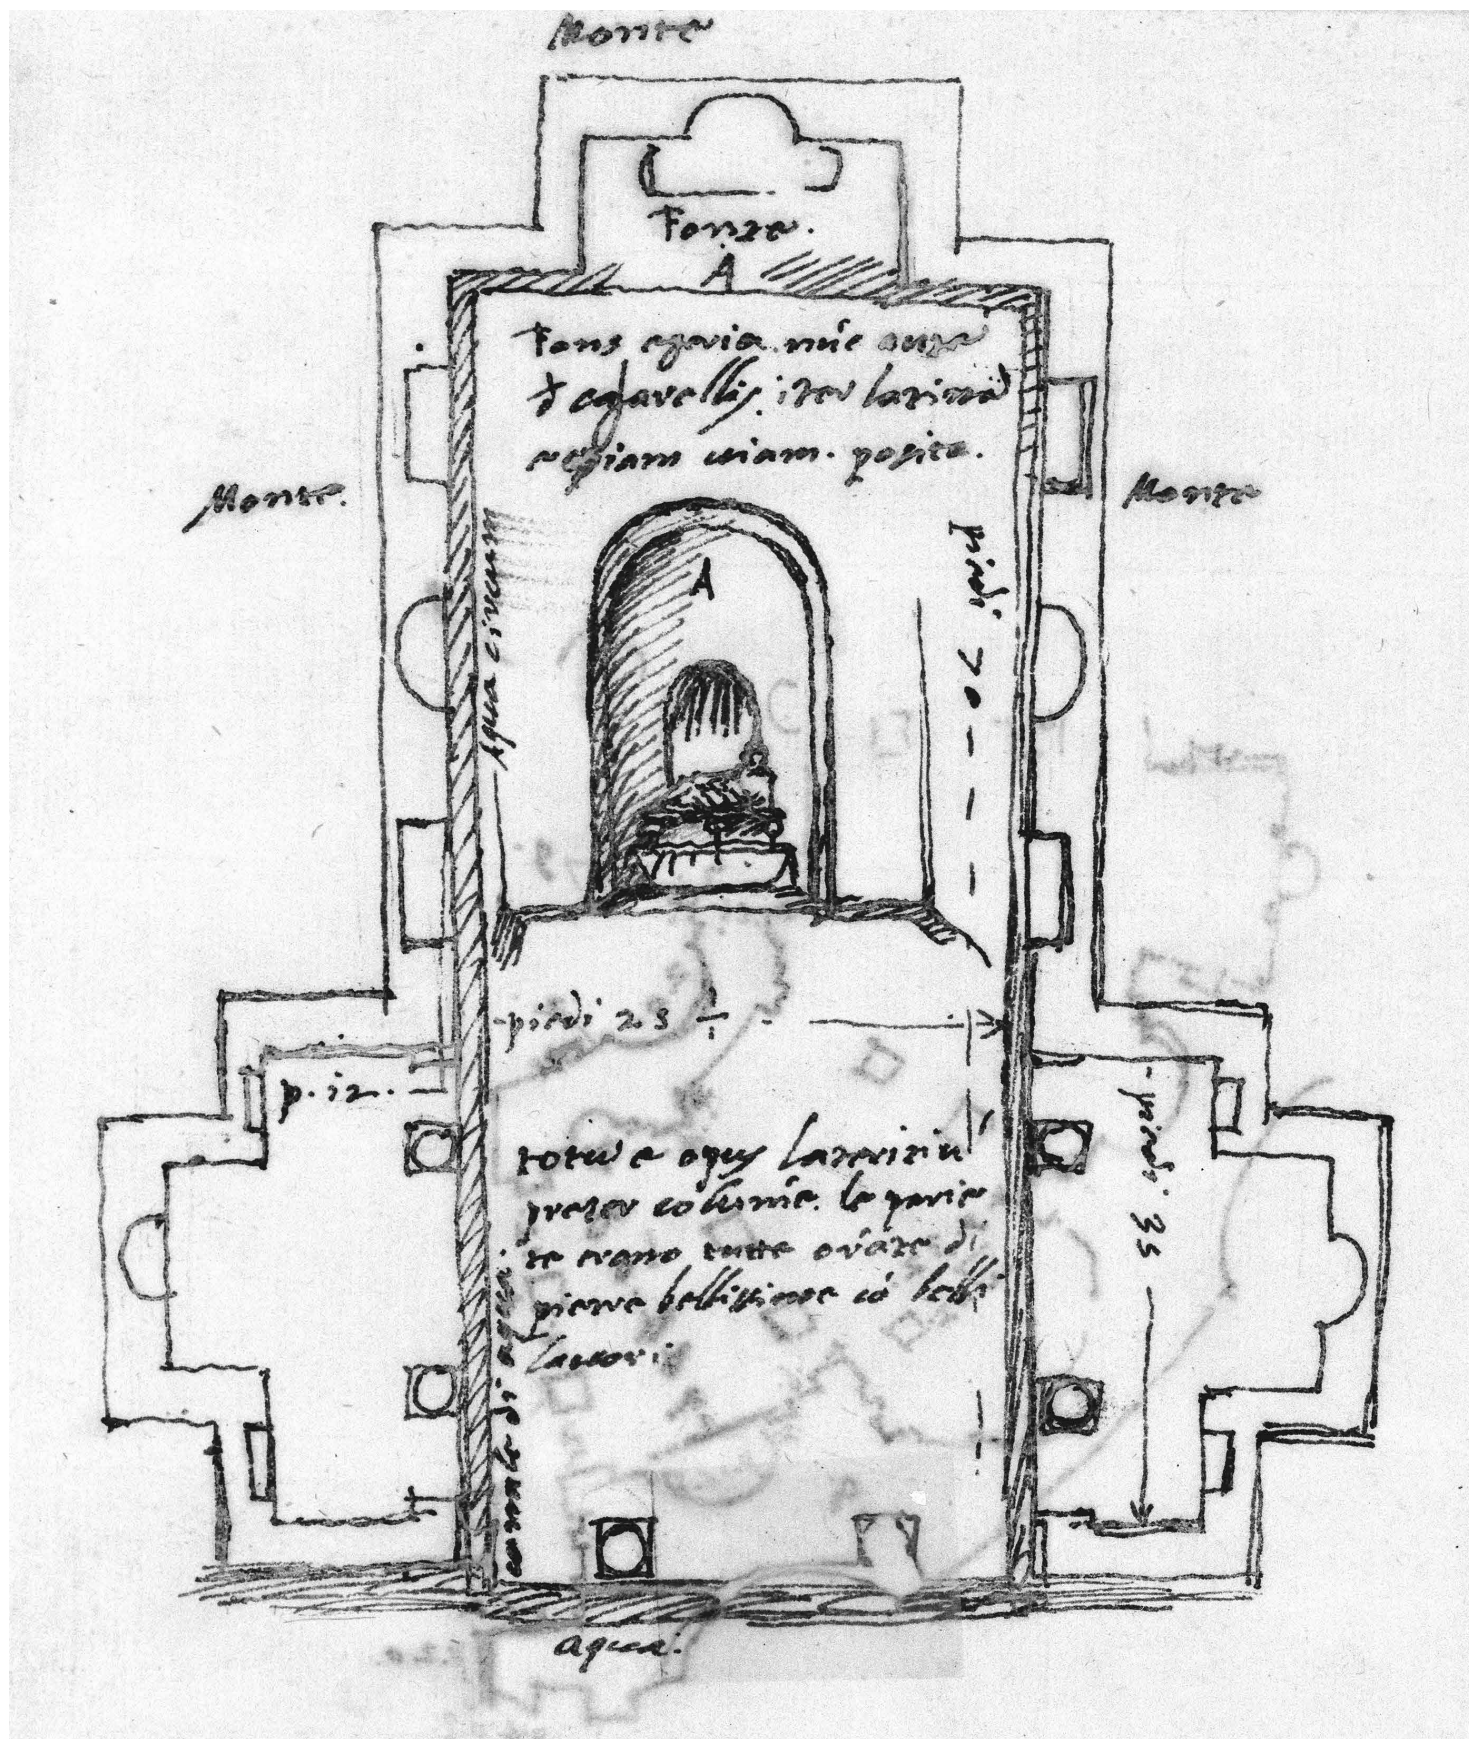 Monte
Fonte.
A
Fons egeria
iter latinā
viam. posita.
Monte.
Monte
A
Aqua circum
piedi 70
piedi 23 ½
p. 12.
piedi 35
totū e opus latericiū
preter colūnne. le parie
te erano tutte ornāte di
pierre bellissime cō belli
lavori
canale di aqua
aqua.